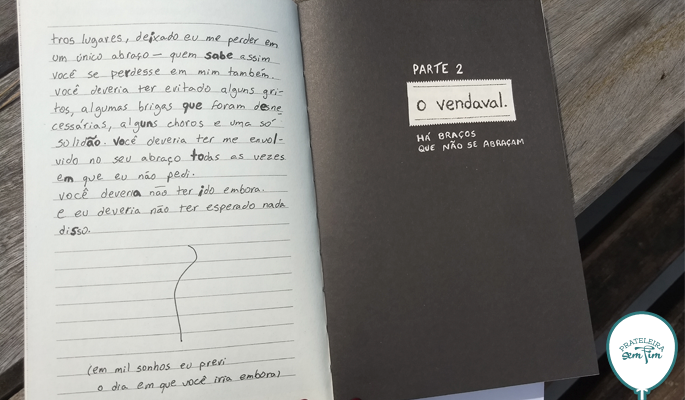 tros lugares, deixado eu me perder em
um único abraço — quem sabe assim
você se perdesse em mim também.
você deveria ter evitado alguns gri-
tos, algumas brigas que foram desne
cessárias, alguns choros e uma só
solidão. você deveria ter me envol-
vido no seu abraço todas as vezes
em que eu não pedi.
você deveria não ter ido embora.
e eu deveria não ter esperado nada
disso.
(em mil sonhos eu previ
o dia em que você iria embora)
PARTE 2
o vendaval.
HÁ BRAÇOS
QUE NÃO SE ABRAÇAM
PRATELEIRA
Sem Fim